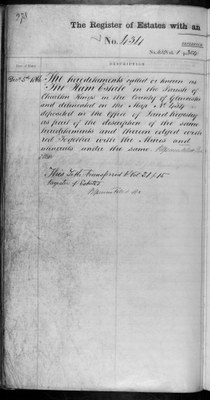 378
The Register of Estates with an
No. 434
DESCRIPTION
The hereditaments called or known as
The Ham Estate in the Parish of
Charlton Kings in the County of Gloucester
and delineated in the Map No 434
deposited in the Office of Land Registry
as part of the description of the same
hereditaments and therein edged with
red Together with the Mines and
minerals under the same
This Title Transferred to Vol 21 / 15
Register of Estates